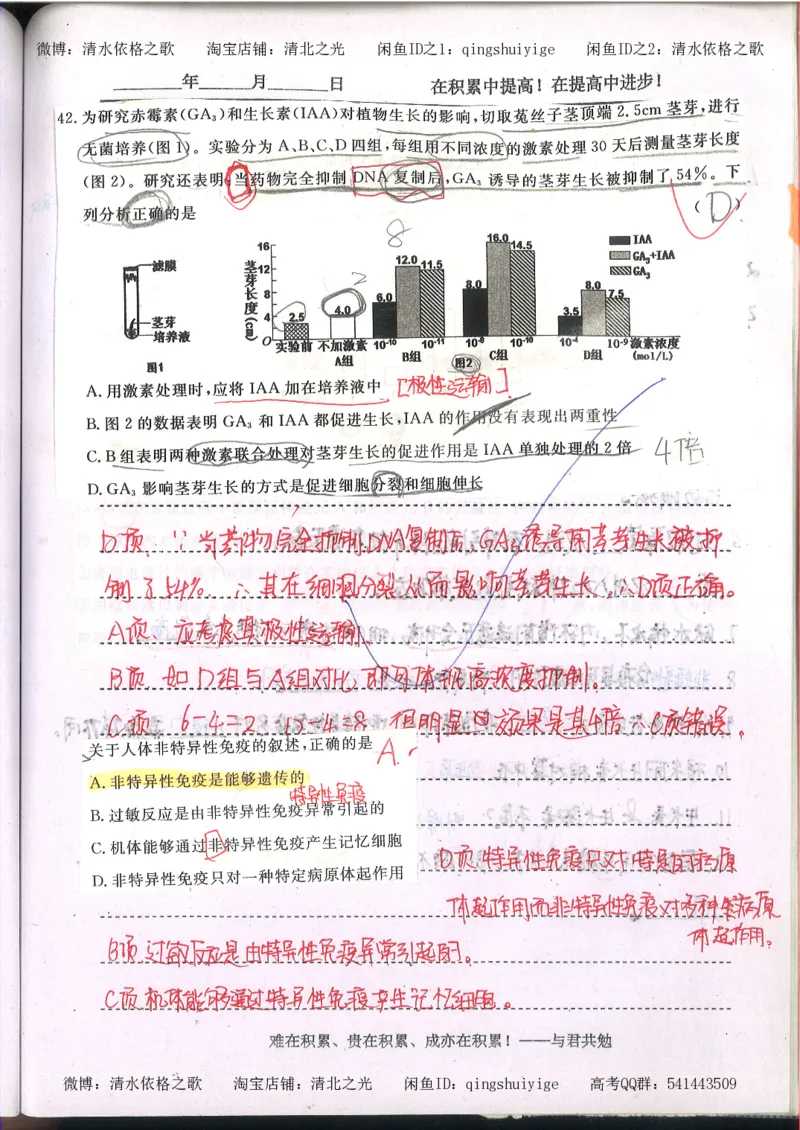 微博：清水依格之歌 淘宝店铺：清北之光 闲鱼ID之1：qingshuiyige 闲鱼ID之2：清水依格之歌
年 月 日 在积累中提高！在提高中进步！
42.为研究赤霉素(GA₃)和生长素(IAA)对植物生长的影响,切取菟丝子茎顶端 2.5cm 茎芽,进行
无菌培养(图1)。实验分为 A、B、C、D 四组,每组用不同浓度的激素处理 30 天后测量茎芽长度
(图 2)。研究还表明,当药物完全抑制 DNA 复制后,GA₃ 诱导的茎芽生长被抑制了 54%。下
列分析正确的是 (D)
8
2
滤膜
茎芽
培养液
图1
茎芽长度(cm)
16
12
8
4
0
2.5
4.0
6.0
12.0
11.5
8.0
16.0
14.5
3.5
8.0
7.5
IAA
GA₃+IAA
GA₃
实验前 不加激素 10⁻¹⁰ 10⁻¹¹ 10⁻⁸ 10⁻¹⁰ 10⁻⁴ 10⁻⁹ 激素浓度
A组 B组 图2 C组 D组 (mol/L)
A.用激素处理时,应将 IAA 加在培养液中 [极性运输]
B.图 2 的数据表明 GA₃ 和 IAA 都促进生长,IAA 的作用没有表现出两重性
C.B 组表明两种激素联合处理对茎芽生长的促进作用是 IAA 单独处理的 2 倍 4倍
D.GA₃ 影响茎芽生长的方式是促进细胞分裂和细胞伸长
D项 ∵当药物完全抑制DNA复制后,GA₃诱导的茎芽生长被抑
制了54%。∴其在细胞分裂从而影响茎芽生长,∴D项正确。
A项 应考虑其极性运输
B项 如D组与A组对比 即可体现高浓度抑制。
C项 6-4=2 12-4=8 但明显 效果是其4倍∴C项错误。
关于人体非特异性免疫的叙述,正确的是 A.
A.非特异性免疫是能够遗传的
特异性免疫
B.过敏反应是由非特异性免疫异常引起的
C.机体能够通过非特异性免疫产生记忆细胞
D.非特异性免疫只对一种特定病原体起作用
D项 特异性免疫只对特定的病原
体起作用而非特异性免疫对多种病原
体起作用。
B项 过敏反应是由特异性免疫异常引起的。
C项 机体能够通过特异性免疫产生记忆细胞。
难在积累、贵在积累、成亦在积累！——与君共勉
微博：清水依格之歌 淘宝店铺：清北之光 闲鱼ID：qingshuiyige 高考QQ群：541443509